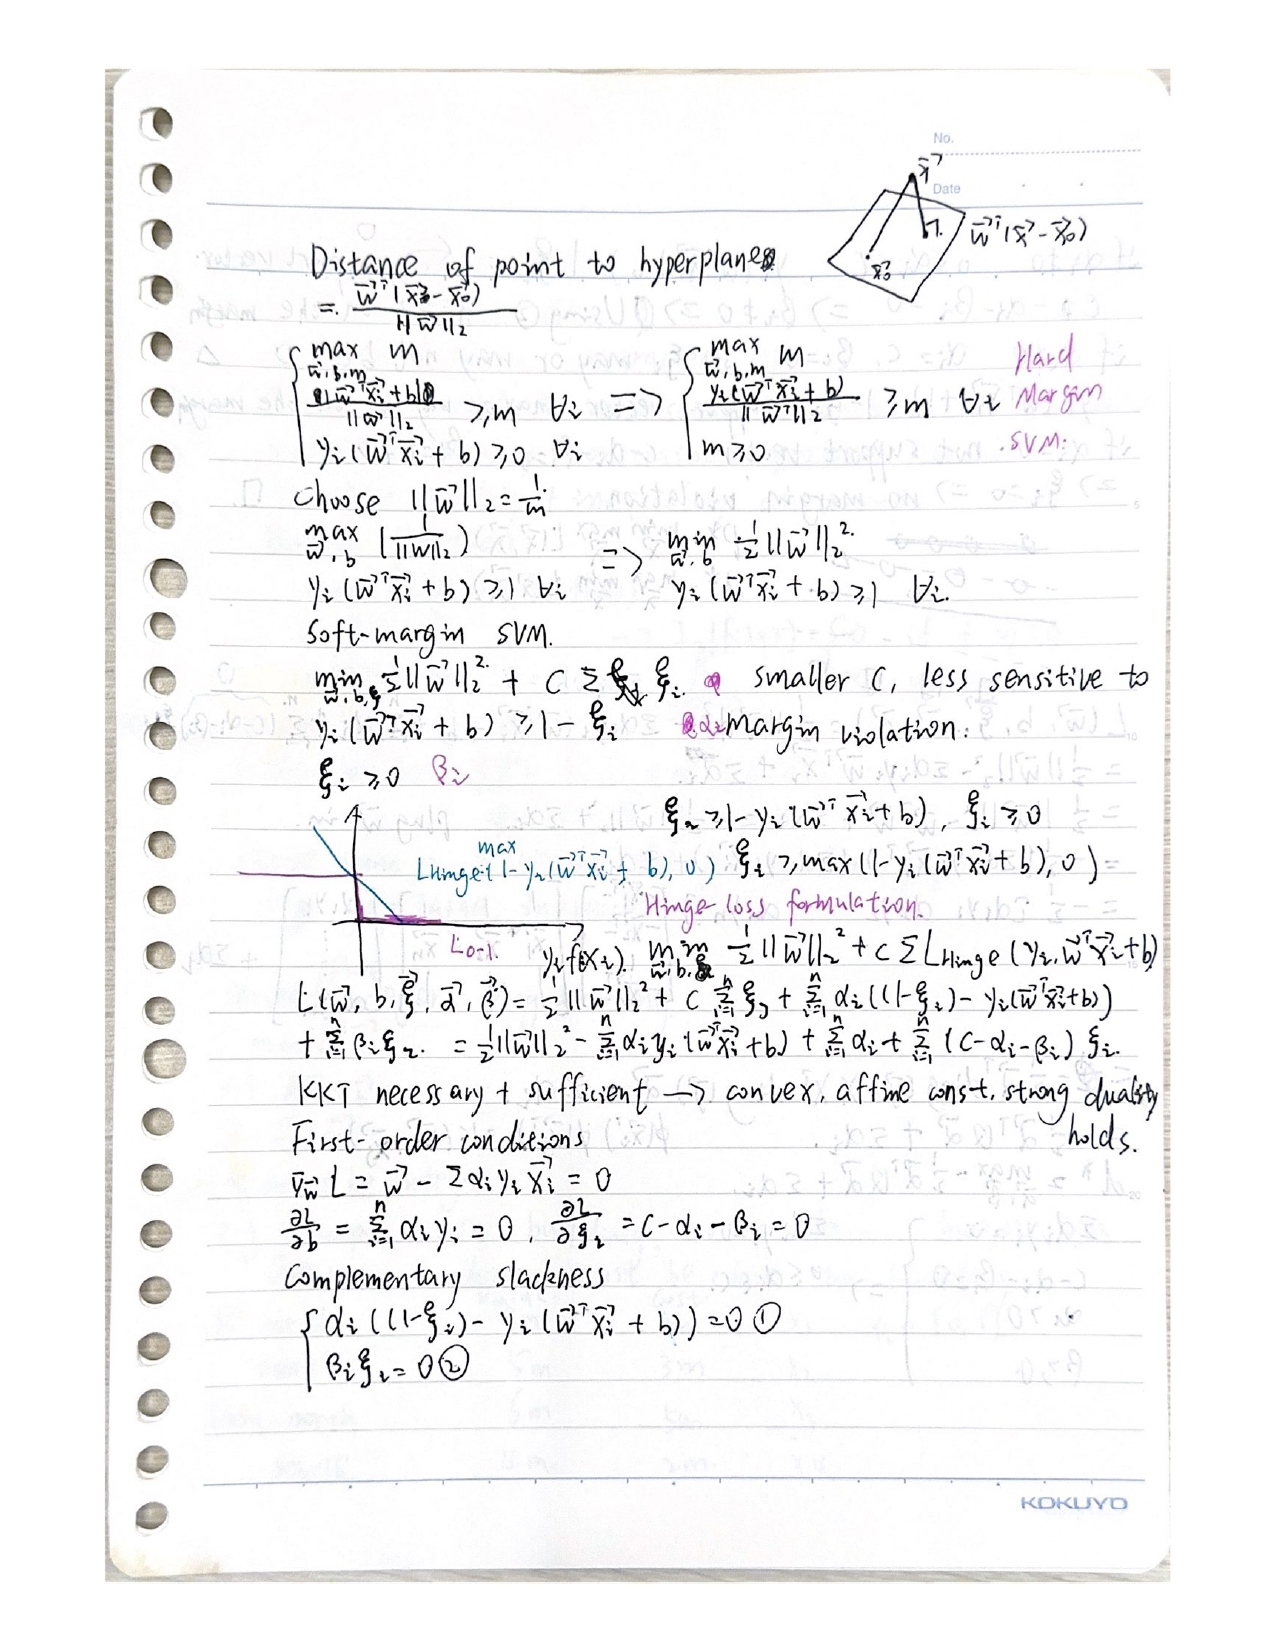 No.
Date
x⃗
x⃗₀
w⃗ᵀ(x⃗ - x⃗₀)
Distance of point to hyperplane
= w⃗ᵀ(x⃗ - x⃗₀) / ||w⃗||₂
{ max_{w⃗,b,m} m => { max_{w⃗,b,m} m Hard
|w⃗ᵀx⃗ᵢ + b| / ||w⃗||₂ ≥ m ∀i yᵢ(w⃗ᵀx⃗ᵢ + b) / ||w⃗||₂ ≥ m ∀i Margin
yᵢ(w⃗ᵀx⃗ᵢ + b) ≥ 0 ∀i m ≥ 0 SVM.
Choose ||w⃗||₂ = 1/m
max_{w⃗,b} (1/||w||₂) => min_{w⃗,b} ½||w⃗||₂².
yᵢ(w⃗ᵀx⃗ᵢ + b) ≥ 1 ∀i yᵢ(w⃗ᵀx⃗ᵢ + b) ≥ 1 ∀i.
Soft-margin SVM.
min_{w⃗,b,ξ} ½||w⃗||₂² + C Σ ξᵢ. smaller C, less sensitive to
yᵢ(w⃗ᵀx⃗ᵢ + b) ≥ 1 - ξᵢ αᵢ margin violation.
ξᵢ ≥ 0 βᵢ
ξᵢ ≥ 1 - yᵢ(w⃗ᵀx⃗ᵢ + b), ξᵢ ≥ 0
L_Hinge: max(1 - yᵢ(w⃗ᵀx⃗ᵢ + b), 0) ξᵢ ≥ max(1 - yᵢ(w⃗ᵀx⃗ᵢ + b), 0) =
Hinge loss formulation.
L₀₋₁. yᵢf(xᵢ). min_{w⃗,b} ½||w⃗||₂² + C Σ L_Hinge(yᵢ, w⃗ᵀx⃗ᵢ + b)
L(w⃗, b, ξ⃗, α⃗, β⃗) = ½||w⃗||₂² + C Σⁿᵢ₌₁ ξᵢ + Σⁿᵢ₌₁ αᵢ((1-ξᵢ) - yᵢ(w⃗ᵀx⃗ᵢ + b))
+ Σⁿᵢ₌₁ βᵢξᵢ. = ½||w⃗||₂² - Σⁿᵢ₌₁ αᵢyᵢ(w⃗ᵀx⃗ᵢ + b) + Σⁿᵢ₌₁ αᵢ + Σⁿᵢ₌₁ (C - αᵢ - βᵢ) ξᵢ.
KKT necessary + sufficient → convex, affine const, strong duality
holds.
First-order conditions
∇_w⃗ L = w⃗ - Σαᵢyᵢx⃗ᵢ = 0
∂L/∂b = Σⁿᵢ₌₁ αᵢyᵢ = 0, ∂L/∂ξᵢ = C - αᵢ - βᵢ = 0
Complementary slackness
{ αᵢ((1-ξᵢ) - yᵢ(w⃗ᵀx⃗ᵢ + b)) = 0 ①
βᵢξᵢ = 0 ②
KOKUYO